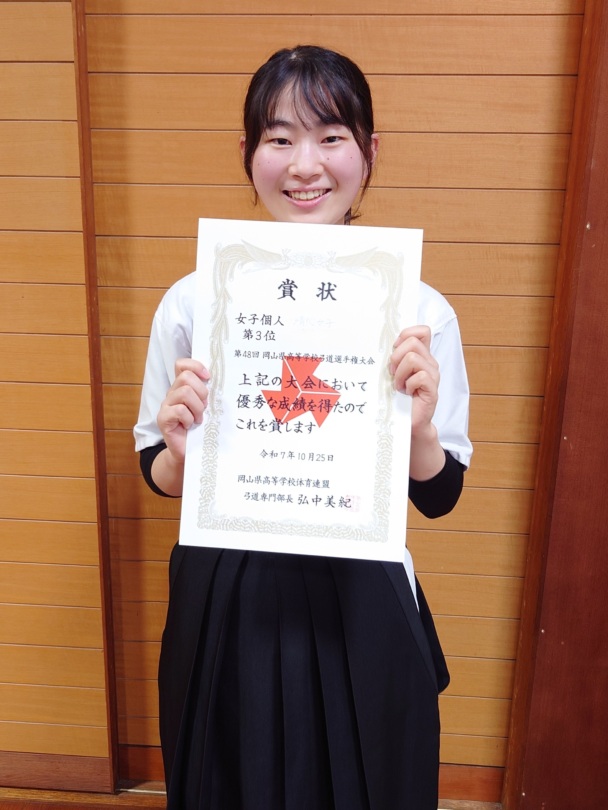 賞状
女子個人
第3位
第48回 岡山県高等学校弓道選手権大会
上記の大会において
優秀な成績を得たので
これを賞します
令和7年10月25日
岡山県高等学校体育連盟
弓道専門部長 弘中美紀